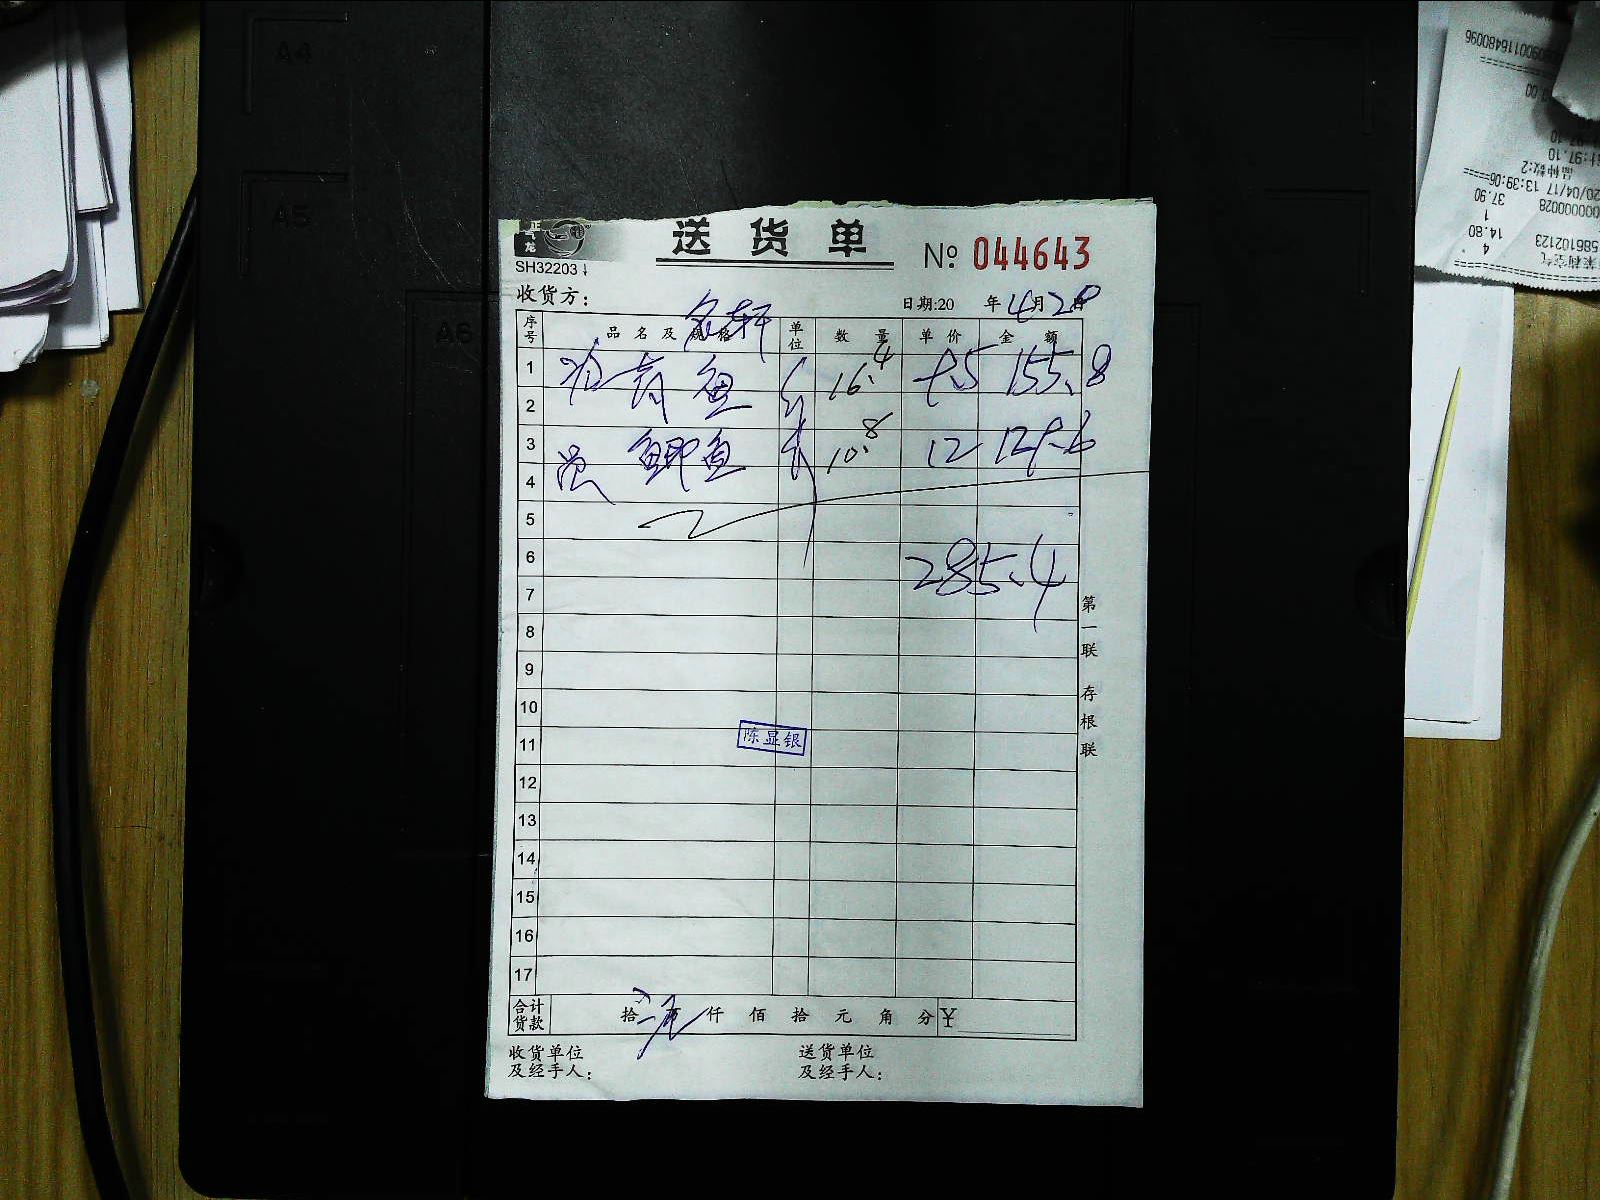 A4
A5
A6
正气龙
送货单
No 044643
SH32203
收货方:
轩
日期:20 年4月28日
序号 品名及规格 单位 数量 单价 金额
1 鱼 16.4 9.5 155.8
2
3 鲫鱼 10.8 12 129.6
4
5
6 285.4
7
8
9
10
11
陈显银
12
13
14
15
16
17
合计货款 拾 万 仟 佰 拾 元 角 分 ¥
收货单位及经手人:
送货单位及经手人:
第一联 存根联
0900116480096
:97.10
品种数:2
20/04/17 13:39:06
37.90
0000000028
1
14.80
586102123
4